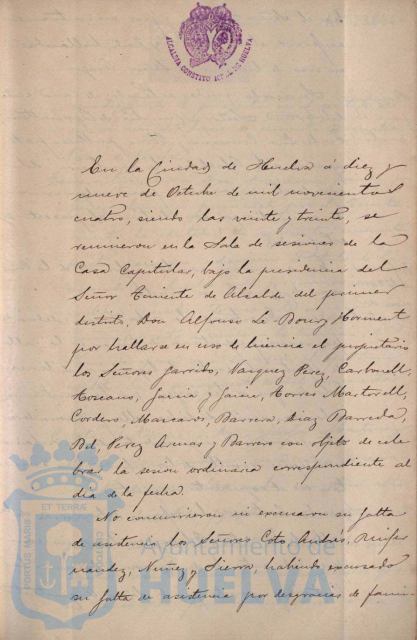 ALCALDIA CONSTITUCIONAL DE HUELVA
En la Ciudad de Huelva á diez y
nueve de Octubre de mil novecientos
cuatro, siendo las veinte y treinta, se
reunieron en la Sala de sesiones de la
Casa Capitular, bajo la presidencia del
Señor Teniente de Alcalde del primer
distrito, Don Alfonso Le Bourg Horment
por hallarse en uso de licencia el propietario
los Señores Garrido, Vazquez Perez, Carbonell,
Toscano, Garcia y Garcia, Torres Martorell,
Cordero, Mascarós, Barrera, Diaz Barreda,
Bel, Perez Armas y Barrero con objeto de cele
brar la sesion ordinaria correspondiente al
dia de la fecha.
No concurrieron ni excusaron su falta
de asistencia los Señores Coto, Andrés,
Nuñez y Sierra, habiendo excusado
su falta de asistencia por desgracias de fami-
PORTUS MARIS ET TERRÆ
Ayuntamiento de
HUELVA